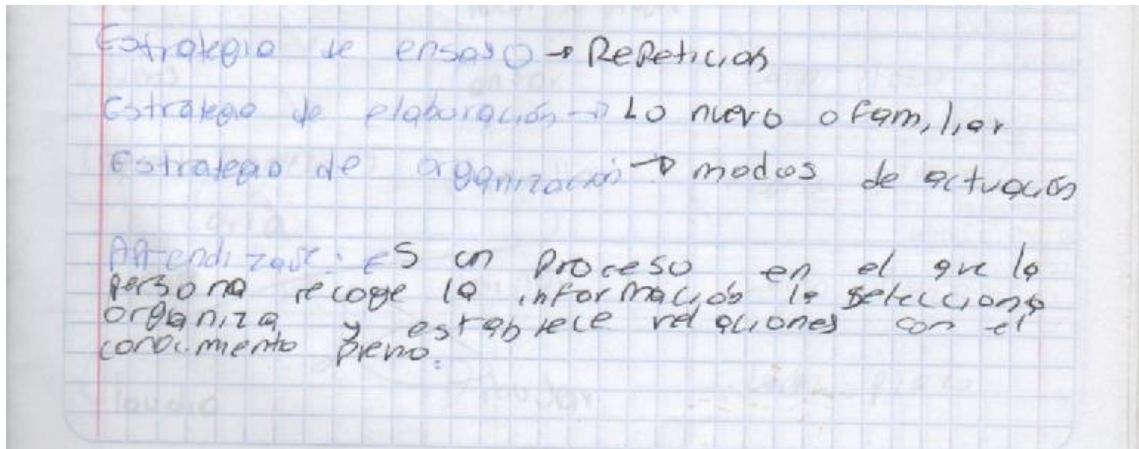 Estrategia de ensayo → Repetición
Estrategia de elaboración → Lo nuevo o familiar
Estrategia de organización → modos de actuación
Aprendizaje: es un proceso en el que la
persona recoge la información la selecciona
organiza y establece relaciones con el
conocimiento previo.